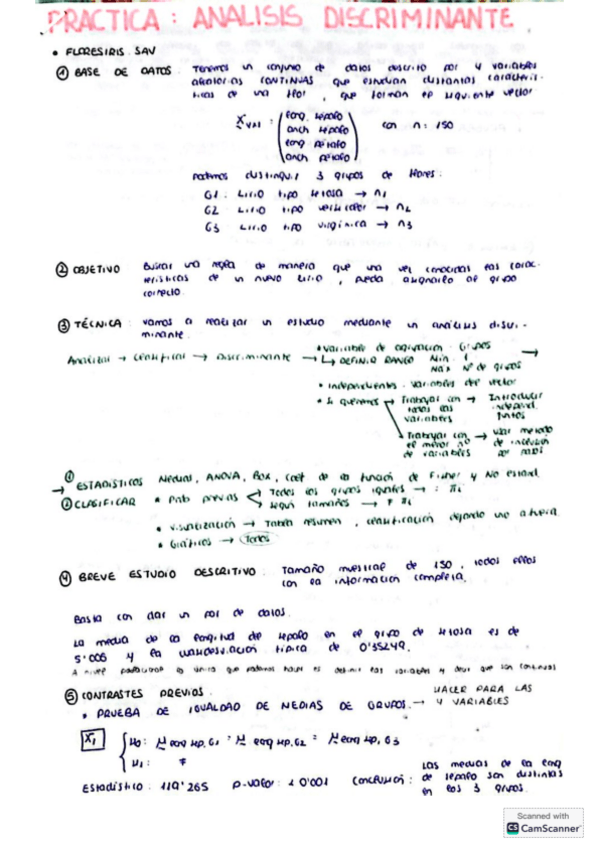 PRACTICA: ANALISIS DISCRIMINANTE
• FLORESIRIS.SAV
① BASE DE DATOS: Tenemos un conjunto de datos descrito por 4 variables
aleatorias CONTINUAS que estudian distintas caracterís-
ticas de una flor, que forman el siguiente vector
X₄ₓ₁ : (long. sépalo con n: 150
anch sépalo
long pétalo
anch pétalo)
podemos distinguir 3 grupos de flores:
G1: Lirio tipo setosa → n₁
G2 Lirio tipo versicolor → n₂
G3 Lirio tipo virginica → n₃
② OBJETIVO Buscar una regla de manera que una vez conocidas las carac-
terísticas de un nuevo lirio, pueda asignarlo al grupo
correcto.
③ TÉCNICA: vamos a realizar un estudio mediante un análisis discri-
minante.
Analizar → clasificar → Discriminante → • Variable de agrupación: Grupos
↳ DEFINIR RANGO Mín: 1 →
Máx Nº de grupos
• Independientes: variables del vector
• Si queremos → Trabajar con todas las variables → Introducir independ. juntos
→ Trabajar con el menor nº de variables → usar método de inclusión por pasos
→ ① ESTADÍSTICOS Medias, ANOVA, Box, Coef de la función de Fisher y No estand.
② CLASIFICAR • Prob previas < Todos los grupos iguales → = πi
Según tamaños → ≠ πi
• Visualización → Tabla resumen, clasificación dejando uno afuera
• Gráficos → Todos
④ BREVE ESTUDIO DESCRITIVO: Tamaño muestral de 150, todos ellos
con la información completa.
Basta con dar un par de datos.
La media de la longitud del sépalo en el grupo de setosa es de
5'006 y la desviación típica de 0'35249.
A nivel poblacional lo único que podemos hacer es definir las variables y decir que son continuas
⑤ CONTRASTES PREVIOS.
• PRUEBA DE IGUALDAD DE MEDIAS DE GRUPOS. → HACER PARA LAS
4 VARIABLES
X₁ { H₀: μ long sép, G1 = μ long sép, G2 = μ long sép, G3
H₁: ≠
Estadístico: 119'265 p-valor: < 0'001 Conclusión: Las medias de la long
de sépalo son distintas
en los 3 grupos.
Scanned with
CS CamScanner